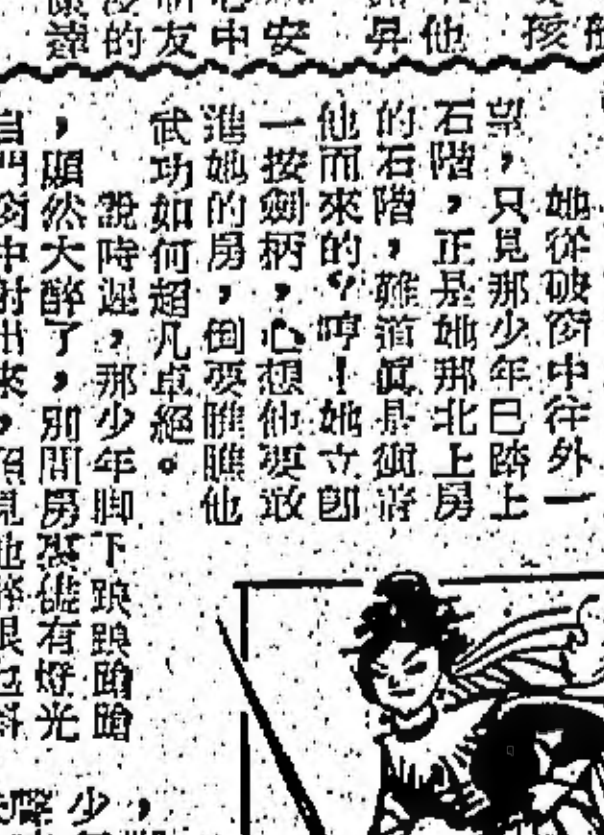 孩
昇他
中安
友
的
達
她從破窗中往外一
望，只見那少年已踏上
石階，正是她那北上房
的石階，難道眞是衝着
他而來的？哼！她立卽
一按劍柄，心想他要敢
進她的房，倒要瞧瞧他
武功如何超凡卓絕。
說時遲，那少年脚下踉踉蹌蹌
，顯然大醉了，別間房裏儘有燈光
自門窗中射出來，
，
少